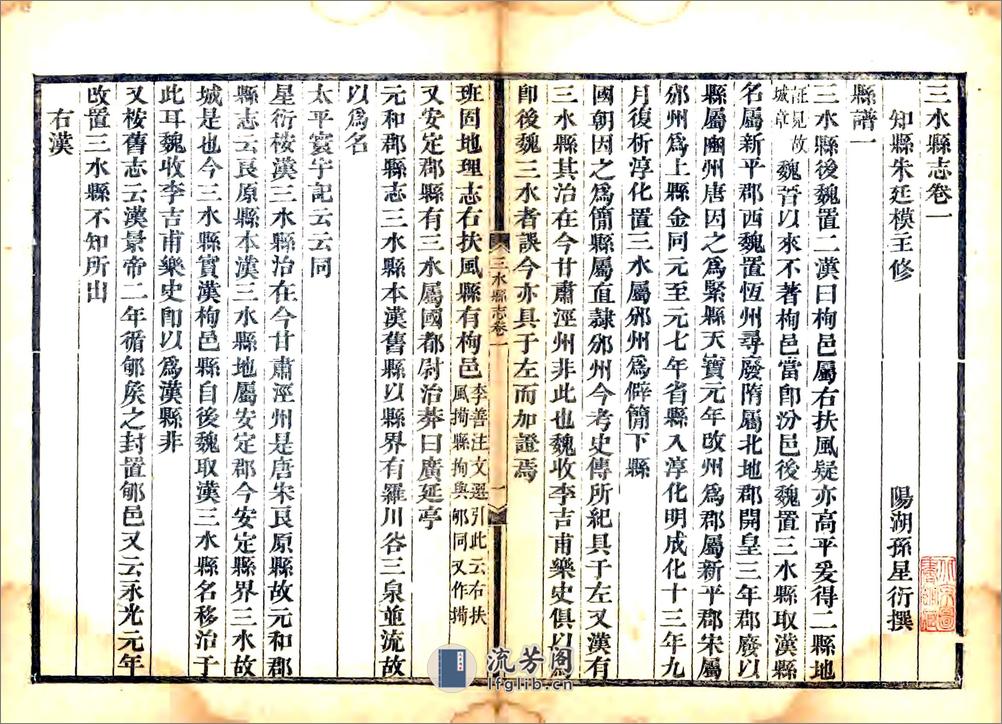 三水縣志卷一
知縣朱延模王修 陽湖孫星衍撰
縣譜一
三水縣後魏置二漢曰栒邑屬右扶風疑亦高平爰得二縣地
証見故城章魏晋以來不著栒邑當即汾邑後魏置三水縣取漢縣
名屬新平郡西魏置恆州尋廢隋屬北地郡開皇三年郡廢以
縣屬豳州唐因之爲緊縣天寶元年改州爲郡屬新平郡宋屬
邠州爲上縣金同元至元七年省縣入淳化明成化十三年九
月復析淳化置三水屬邠州爲僻簡下縣
國朝因之爲簡縣屬直隷邠州今考史傳所紀具于左又漢有
三水縣其治在今甘肅涇州非此也魏收李吉甫樂史俱以爲
即後魏三水者誤今亦具于左而加證焉
三水縣志卷一
一
班固地理志右扶風縣有栒邑李善注文選引此云右扶風㧨縣拘與郇同又作㧨
又安定郡縣有三水屬國都尉治莽曰廣延亭
元和郡縣志三水縣本漢舊縣以縣界有羅川谷三泉並流故
以爲名
太平寰宇記云云同
星衍桉漢三水縣治在今甘肅涇州是唐朱良原縣故元和郡
縣志云良原縣本漢三水縣地屬安定郡今安定縣界三水故
城是也今三水縣實漢栒邑縣自後魏取漢三水縣名移治于
此耳魏收李吉甫樂史即以爲漢縣非
又桉舊志云漢景帝二年循郇矦之封置郇邑又云永光元年
改置三水縣不知所出
右漢
流芳阁
lfglib.cn